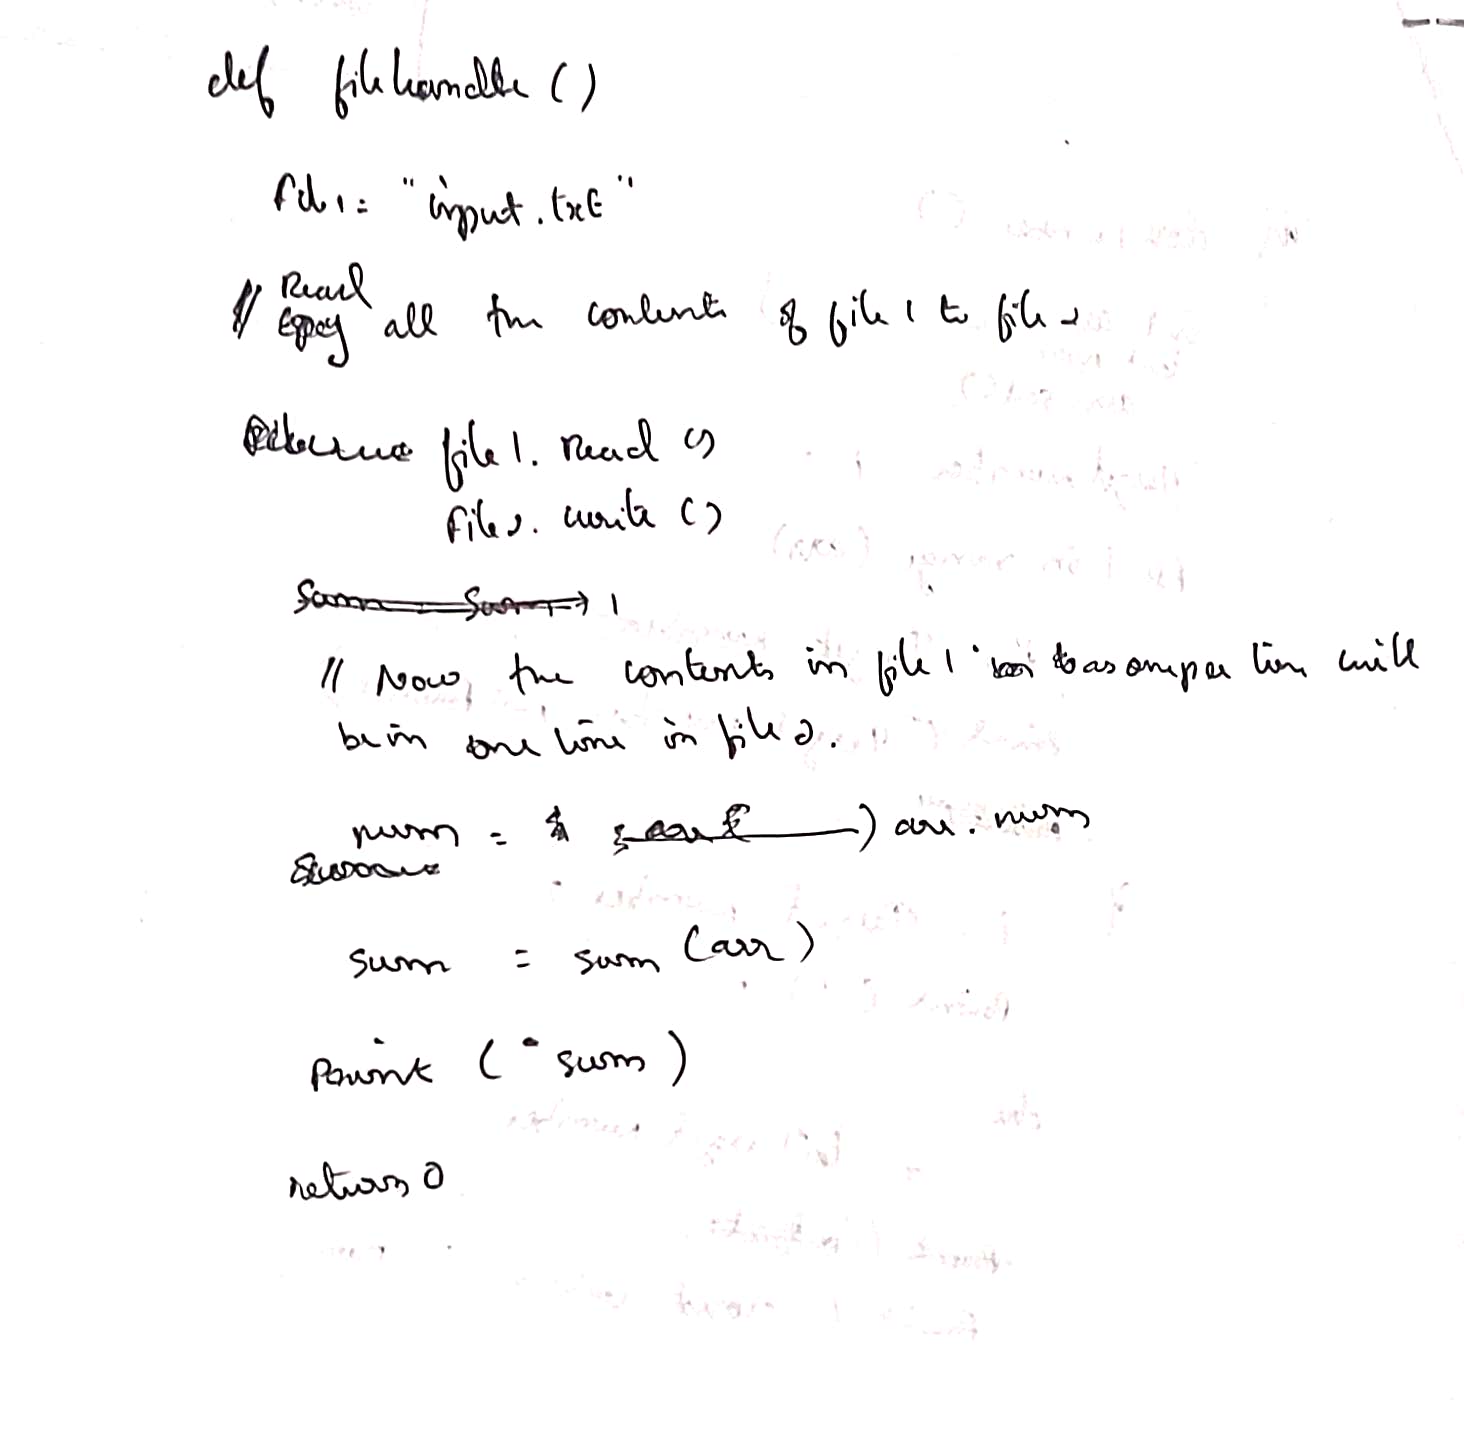 def filehandle ()
file1 = "input.txt"
// Read
all the contents of file 1 to file 2
file 1. Read ()
file2. write ()
// Now, the contents in file 1 as one per line will
be in one line in file 2.
num = arr. num
sum = sum (arr)
Print ( sum )
return 0